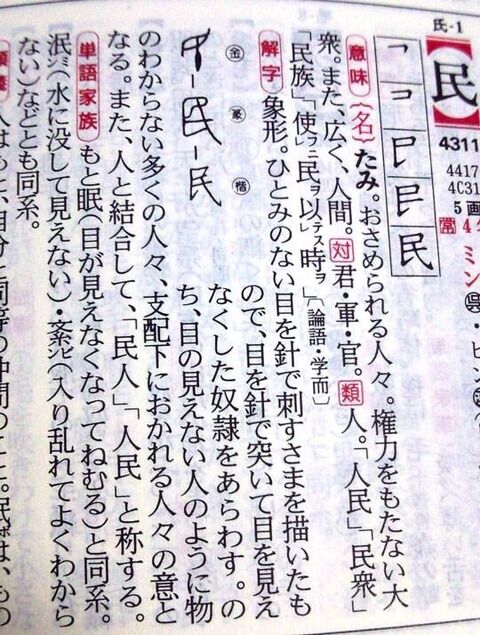 氏-1
【民】
4311
4417
4C31
5画
常
ミン
呉
民
意味
〔名〕たみ。おさめられる人々。権力をもたない大
衆。また、広く、人間。対君・軍・官。類人。「人民」「民衆」
「民族」「使フニ民ヲ以テス時ヲ」〔論語・学而〕
解字
象形。ひとみのない目を針で刺すさまを描いたも
ので、目を針で突いて目を見え
なくした奴隷をあらわす。の
ち、目の見えない人のように物
金
篆
楷
民
のわからない多くの人々、支配下におかれる人々の意と
なる。また、人と結合して、「民人」「人民」と称する。
単語家族
もと眠(目が見えなくなってねむる)と同系。
泯ビン(水に没して見えない)・紊ビン(入り乱れてよくわから
ない)などとも同系。